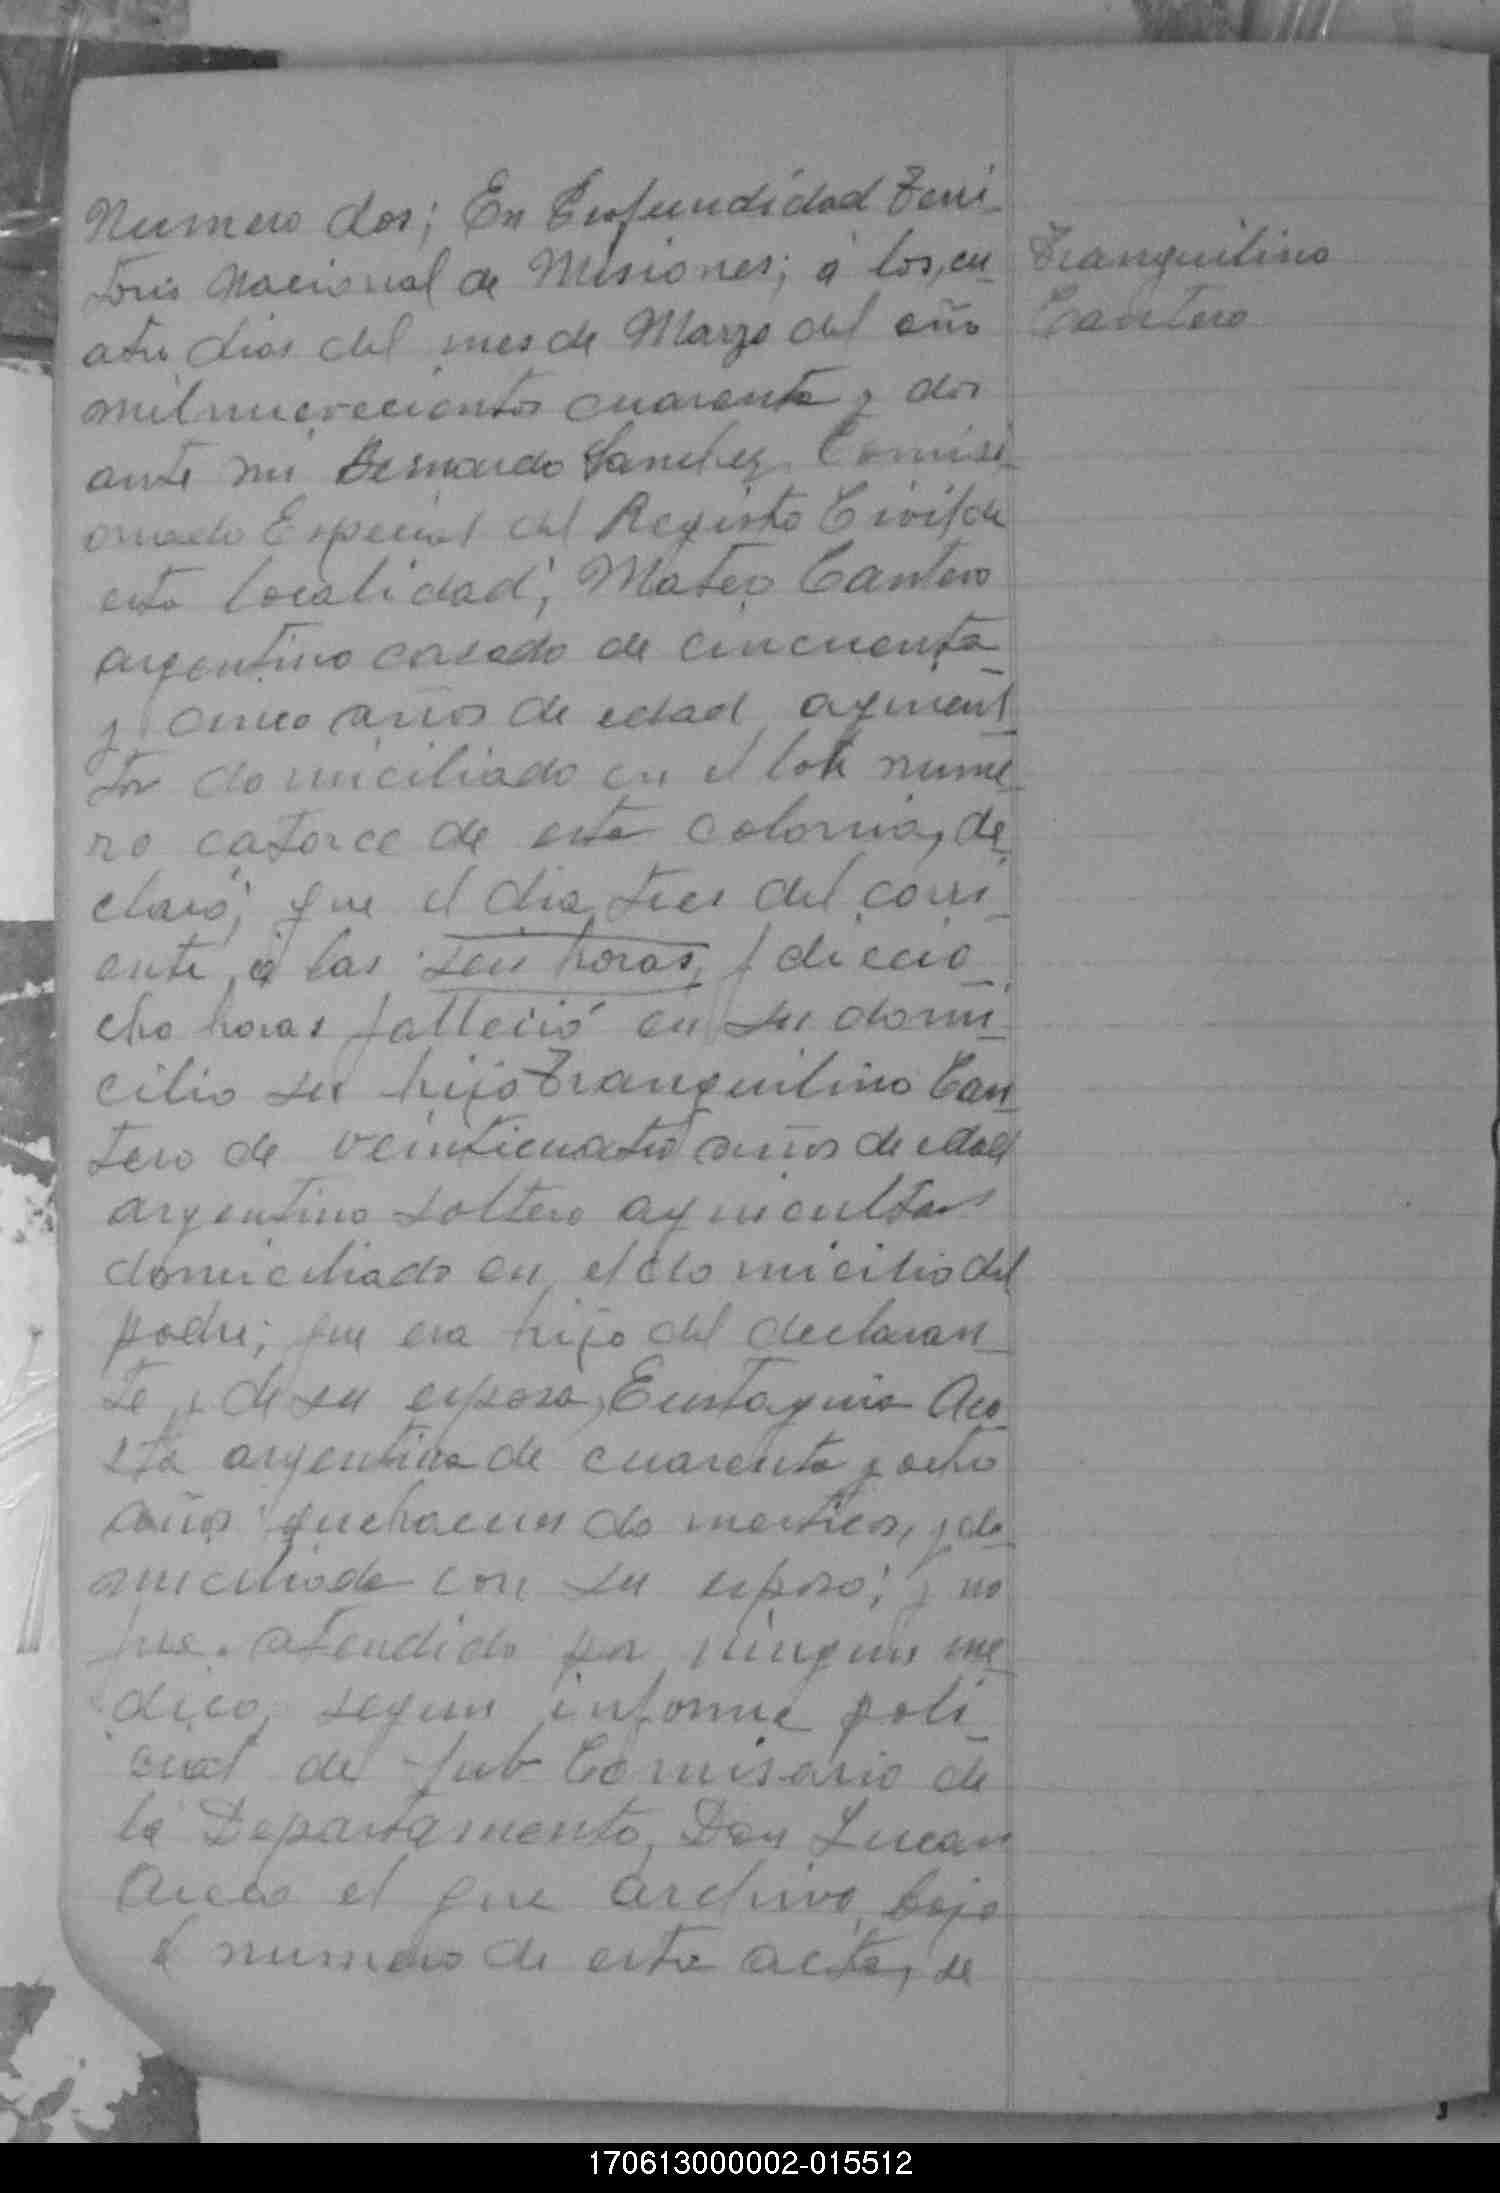 Numero dos; En Profundidad Terri
torio Nacional de Misiones; á los, cu
atro dias del mes de Marzo del año
mil nuevecientos cuarenta y dos
ante mi Bernardo Sanchez, Comisi
onado Especial del Registro Civil de
esta localidad; Mateo Cantero
argentino casado de cincuenta
y cinco años de edad, agricul
tor domiciliado en el lote nume
ro catorce de esta colonia, de
claró; que el dia tres del corri
ente, á las seis horas, / diecio
cho horas falleció en su domi
cilio su hijo Tranquilino Can
tero de veinticuatro años de edad
argentino soltero agricultor
domiciliado en el domicilio del
padre; que era hijo del declaran
te y de su esposa, Eustaquia Aco
sta argentina de cuarenta y ocho
años quehaceres domesticos, y do
miciliada con su esposo; y no
fue atendido por ningun me
dico, segun informe poli
cial de Sub Comisario de
la Departamento, Don Lucan
el que archivo bajo
el numero de esta acta, se
Tranquilino
Cantero
170613000002-015512